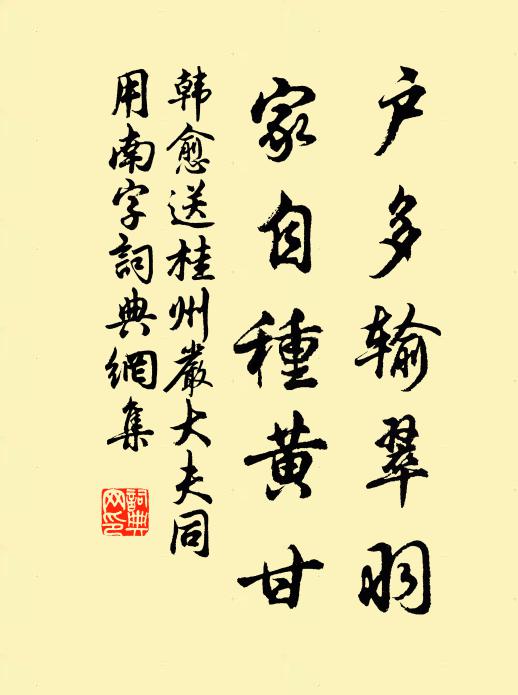 户多输翠羽
家自種黄甘
韩愈送桂州嚴大夫同
用南字詞典網集
詞典网印